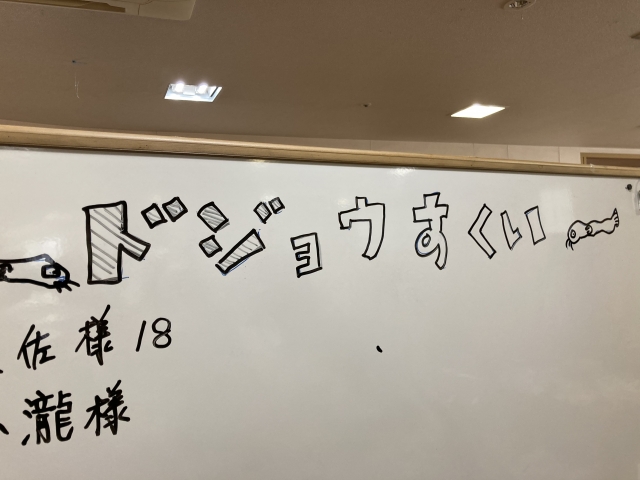 ドジョウすくい
佐様 18
瀧様